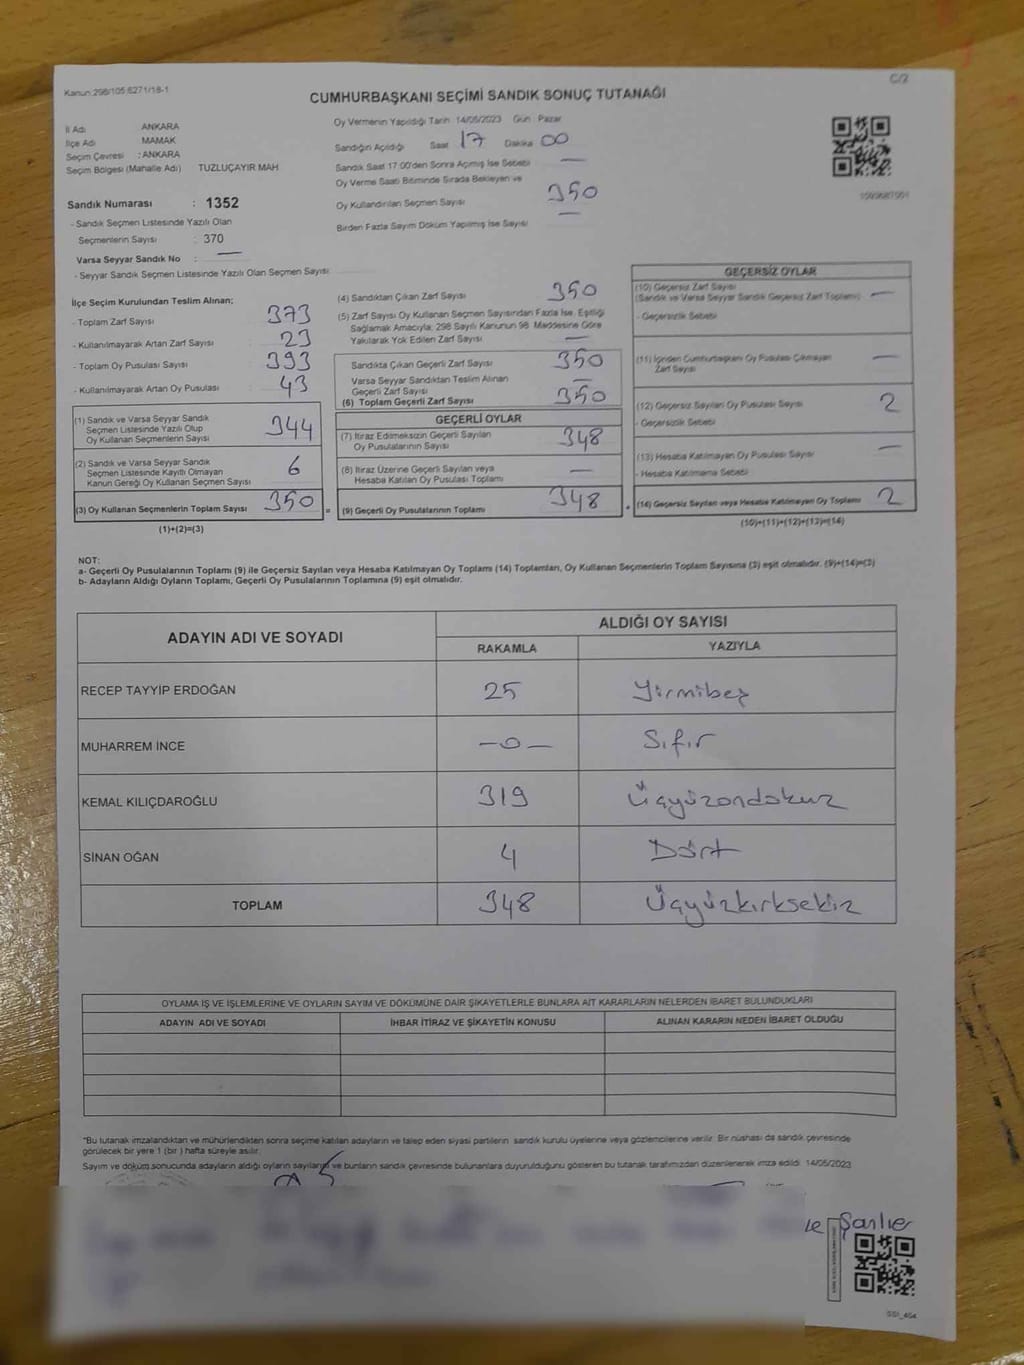 Kanun:298/105,6271/18-1
C/2
CUMHURBAŞKANI SEÇİMİ SANDIK SONUÇ TUTANAĞI
İl Adı ANKARA
İlçe Adı MAMAK
Seçim Çevresi : ANKARA
Seçim Bölgesi (Mahalle Adı) TUZLUÇAYIR MAH
Sandık Numarası : 1352
- Sandık Seçmen Listesinde Yazılı Olan
Seçmenlerin Sayısı : 370
Varsa Seyyar Sandık No : —
- Seyyar Sandık Seçmen Listesinde Yazılı Olan Seçmen Sayısı
Oy Vermenin Yapıldığı Tarih 14/05/2023 Gün : Pazar
Sandığın Açıldığı Saat 17 Dakika 00
Sandık Saat 17:00'den Sonra Açılmış İse Sebebi —
Oy Verme Saati Bitiminde Sırada Bekleyen ve
Oy Kullandırılan Seçmen Sayısı 350
Birden Fazla Sayım Döküm Yapılmış İse Sayısı —
İlçe Seçim Kurulundan Teslim Alınan;
- Toplam Zarf Sayısı : 373
- Kullanılmayarak Artan Zarf Sayısı : 23
- Toplam Oy Pusulası Sayısı : 393
- Kullanılmayarak Artan Oy Pusulası : 43
(1) Sandık ve Varsa Seyyar Sandık
Seçmen Listesinde Yazılı Olup
Oy Kullanan Seçmenlerin Sayısı 344
(2) Sandık ve Varsa Seyyar Sandık
Seçmen Listesinde Kayıtlı Olmayan
Kanun Gereği Oy Kullanan Seçmen Sayısı 6
(3) Oy Kullanan Seçmenlerin Toplam Sayısı 350
(1)+(2)=(3)
(4) Sandıktan Çıkan Zarf Sayısı 350
(5) Zarf Sayısı Oy Kullanan Seçmen Sayısından Fazla İse, Eşitliği
Sağlamak Amacıyla; 298 Sayılı Kanunun 98. Maddesine Göre
Yakılarak Yok Edilen Zarf Sayısı —
Sandıkta Çıkan Geçerli Zarf Sayısı 350
Varsa Seyyar Sandıktan Teslim Alınan
Geçerli Zarf Sayısı —
(6) Toplam Geçerli Zarf Sayısı 350
GEÇERLİ OYLAR
(7) İtiraz Edilmeksizin Geçerli Sayılan
Oy Pusulalarının Sayısı 348
(8) İtiraz Üzerine Geçerli Sayılan veya
Hesaba Katılan Oy Pusulası Toplamı —
(9) Geçerli Oy Pusulalarının Toplamı 348
GEÇERSİZ OYLAR
(10) Geçersiz Zarf Sayısı
(Sandık ve Varsa Seyyar Sandık Geçersiz Zarf Toplamı) —
- Geçersizlik Sebebi
(11) İçinden Cumhurbaşkanı Oy Pusulası Çıkmayan
Zarf Sayısı —
(12) Geçersiz Sayılan Oy Pusulası Sayısı 2
- Geçersizlik Sebebi
(13) Hesaba Katılmayan Oy Pusulası Sayısı —
- Hesaba Katılmama Sebebi
(14) Geçersiz Sayılan veya Hesaba Katılmayan Oy Toplamı 2
(10)+(11)+(12)+(13)=(14)
NOT:
a- Geçerli Oy Pusulalarının Toplamı (9) ile Geçersiz Sayılan veya Hesaba Katılmayan Oy Toplamı (14) Toplamları, Oy Kullanan Seçmenlerin Toplam Sayısına (3) eşit olmalıdır. (9)+(14)=(3)
b- Adayların Aldığı Oyların Toplamı, Geçerli Oy Pusulalarının Toplamına (9) eşit olmalıdır.
ADAYIN ADI VE SOYADI ALDIĞI OY SAYISI
RAKAMLA YAZIYLA
RECEP TAYYİP ERDOĞAN 25 Yirmibeş
MUHARREM İNCE —0— Sıfır
KEMAL KILIÇDAROĞLU 319 Üçyüzondokuz
SİNAN OĞAN 4 Dört
TOPLAM 348 Üçyüzkırksekiz
OYLAMA İŞ VE İŞLEMLERİNE VE OYLARIN SAYIM VE DÖKÜMÜNE DAİR ŞİKAYETLERLE BUNLARA AİT KARARLARIN NELERDEN İBARET BULUNDUKLARI
ADAYIN ADI VE SOYADI İHBAR İTİRAZ VE ŞİKAYETİN KONUSU ALINAN KARARIN NEDEN İBARET OLDUĞU
*Bu tutanak imzalandıktan ve mühürlendikten sonra seçime katılan adayların ve talep eden siyasi partilerin sandık kurulu üyelerine veya gözlemcilerine verilir. Bir nüshası da sandık çevresinde
görülecek bir yere 1 (bir) hafta süreyle asılır.
Sayım ve döküm sonucunda adayların aldığı oyların sayılarını ve bunların sandık çevresinde bulunanlara duyurulduğunu gösteren bu tutanak tarafımızdan düzenlenerek imza edildi. 14/05/2023
Şanlıer